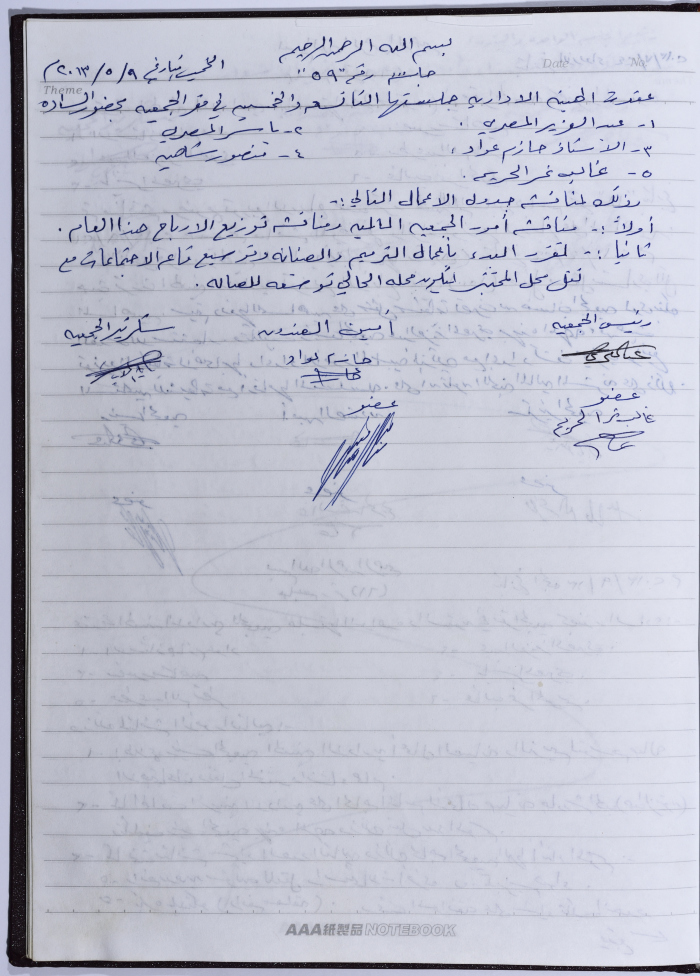 بسم الله الرحمن الرحيم
جلسة رقم "٥٩" الخميس بتاريخ ٢٠١٣/٥/٩م
Theme Date No
عقدت الهيئة الادارية جلستها التاسعه والخمسين في مقر الجمعيه بحضور الساده
١- عبد العزيز المصري . ٢- ياسر المصري
٣- الأستاذ حازم عواد . ٤- منصور شاهين
٥- غالب نمر الحريم .
وذلك لمناقشة جدول الاعمال التالي :-
أولاً :- مناقشة أمور الجمعيه الماليه ومناقشه توزيع الارباح هذا العام .
ثانياً :- تقرر البدء بأعمال الترميم والصيانه وتوسيع قاعة الاجتماعات مع
نقل محل المختبر ليكون محله الحالي توسعه للصاله .
رئيس الجمعيه أمين الصندوق سكرتير الجمعيه
حازم عواد
عضو عضو
غالب نمر الحريم
AAA紙製品 NOTEBOOK